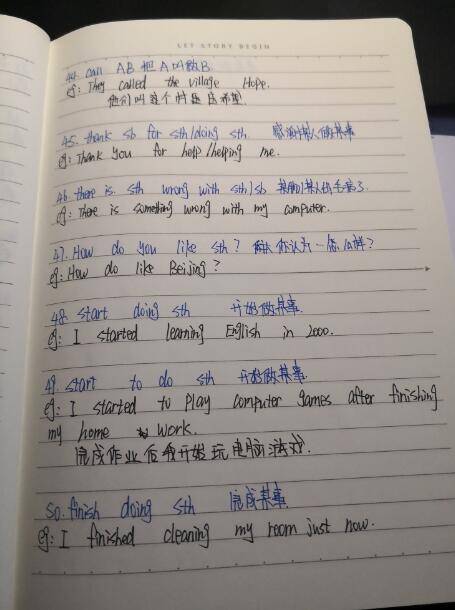 LET STORY BEGIN
44. call AB 把A叫做B.
eg: They called the village Hope.
他们叫这个村庄为希望.
45. thank sb for sth/doing sth 感谢某人做某事
eg: Thank you for help/helping me.
46. there is sth wrong with sth/sb 某物/某人出毛病了
eg: There is something wrong with my computer.
47. How do you like sth? 你认为…怎么样?
eg: How do like Beijing?
48. start doing sth 开始做某事
eg: I started learning English in 2000.
49. start to do sth 开始做某事
eg: I started to play computer games after finishing
my home work.
完成作业后我开始玩电脑游戏.
50. finish doing sth 完成某事
eg: I finished cleaning my room just now.